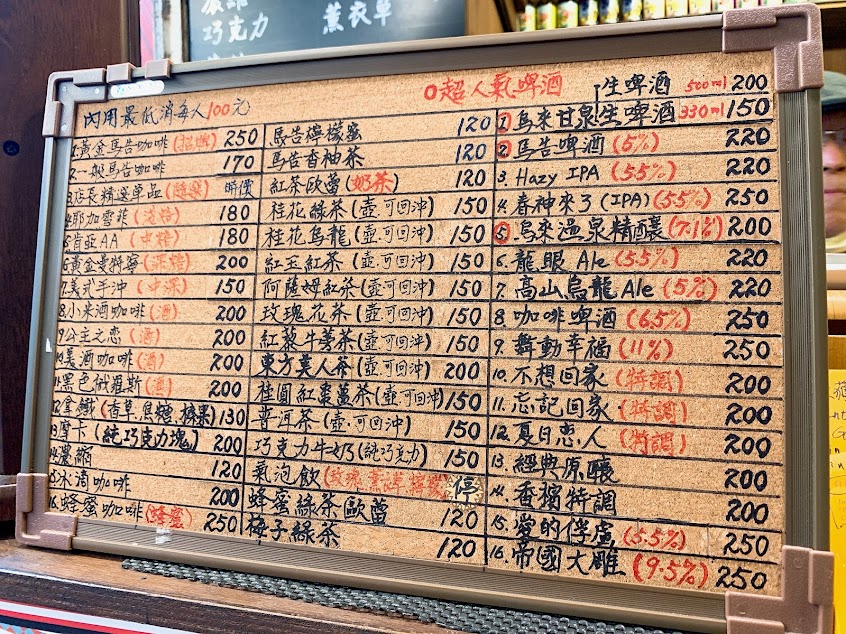 巧克力
薰衣草
內用最低消每人100元
1.黃金馬告咖啡(招牌) 250
2.一般馬告咖啡 170
3.店長精選單品(隨樂) 時價
4.耶加雪菲(淺焙) 180
5.肯亞AA(中焙) 180
6.黃金曼特寧(深焙) 200
7.美式手沖(中深) 150
8.小米酒咖啡(酒) 200
9.公主之戀(酒) 200
10.美酒咖啡(酒) 200
11.黑色俄羅斯(酒) 200
12.拿鐵(香草.焦糖.榛果) 130
13.摩卡(純巧克力塊) 200
14.濃縮 120
15.冰滴咖啡 200
16.蜂蜜咖啡(蜂蜜) 250
馬告檸檬蜜 120
馬告香柚茶 120
紅茶歐蕾(奶茶) 120
桂花綠茶(壺.可回沖) 150
桂花烏龍(壺.可回沖) 150
紅玉紅茶(壺.可回沖) 150
阿薩姆紅茶(壺可回沖) 150
玫瑰花茶(壺可回沖) 150
紅藜牛蒡茶(壺可回沖) 150
東方美人茶(壺可回沖) 200
桂圓紅棗薑茶(壺可回沖) 150
普洱茶(壺.可回沖) 150
巧克力牛奶(純巧克力) 150
氣泡飲(玫瑰.薰衣草.檸檬) 停
蜂蜜綠茶歐蕾 120
梅子綠茶 120
超人氣啤酒 生啤酒 500ml 200
1.烏來甘泉生啤酒 330ml 150
2.馬告啤酒(5%) 220
3.Hazy IPA(5.5%) 220
4.春神來了(IPA)(5.5%) 250
5.烏來溫泉精釀(7.1%) 200
6.龍眼Ale(5.5%) 220
7.高山烏龍Ale(5%) 220
8.咖啡啤酒(6.5%) 250
9.舞動幸福(11%) 250
10.不想回家(特調) 200
11.忘記回家(特調) 200
12.夏日戀人(特調) 200
13.經典原釀 200
14.香檳特調 200
15.愛的俘虜(5.5%) 250
16.帝國大雕(9.5%) 250